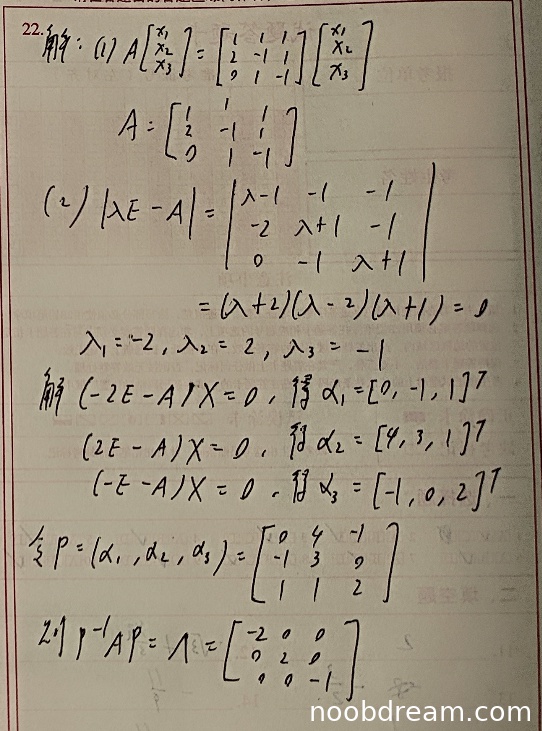 22.
解: (1) A[x₁ x₂ x₃] = [1 1 1; 2 -1 1; 0 1 -1] [x₁ x₂ x₃]
A = [1 1 1; 2 -1 1; 0 1 -1]
(2) |λE - A| = |λ-1 -1 -1; -2 λ+1 -1; 0 -1 λ+1|
= (λ+2)(λ-2)(λ+1) = 0
λ₁ = -2, λ₂ = 2, λ₃ = -1
解 (-2E - A)X = 0, 得 α₁ = [0, -1, 1]ᵀ
(2E - A)X = 0, 得 α₂ = [4, 3, 1]ᵀ
(-E - A)X = 0, 得 α₃ = [-1, 0, 2]ᵀ
令 P = (α₁, α₂, α₃) = [0 4 -1; -1 3 0; 1 1 2]
则 P⁻¹AP = Λ = [-2 0 0; 0 2 0; 0 0 -1]
noobdream.com